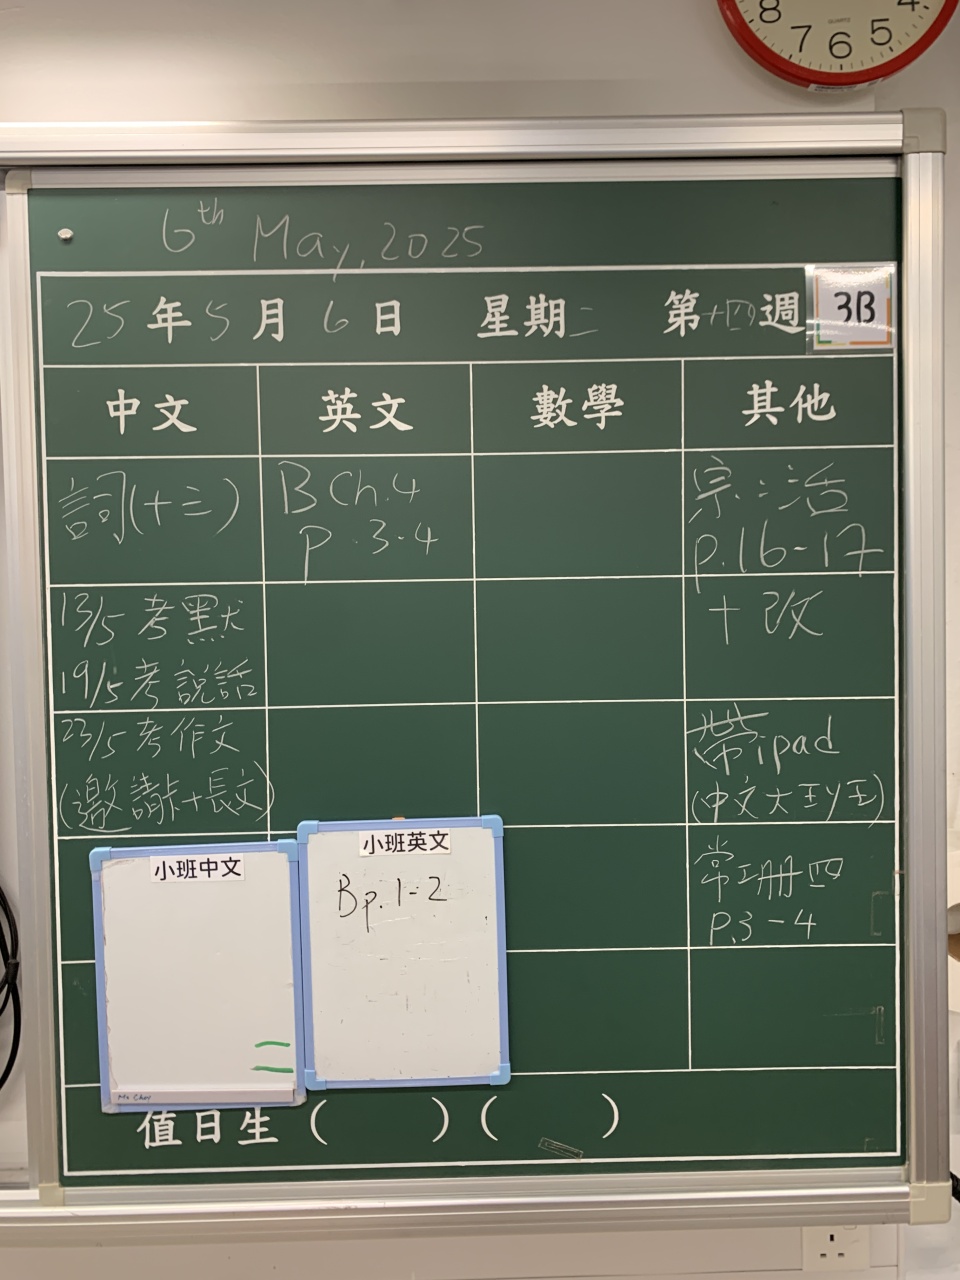 8 7 6 5 4
QUARTZ
6th May, 2025
25年5月6日 星期二 第十四週 3B
中文 英文 數學 其他
詞(十三)
13/5 考默
19/5 考說話
23/5 考作文
(邀請卡+長文)
B Ch.4
p.3-4
宗:活
p.16-17
+改
帶ipad
(中文
常工册四
P.3-4
小班中文
小班英文
Bp.1-2
值日生 ( ) ( )